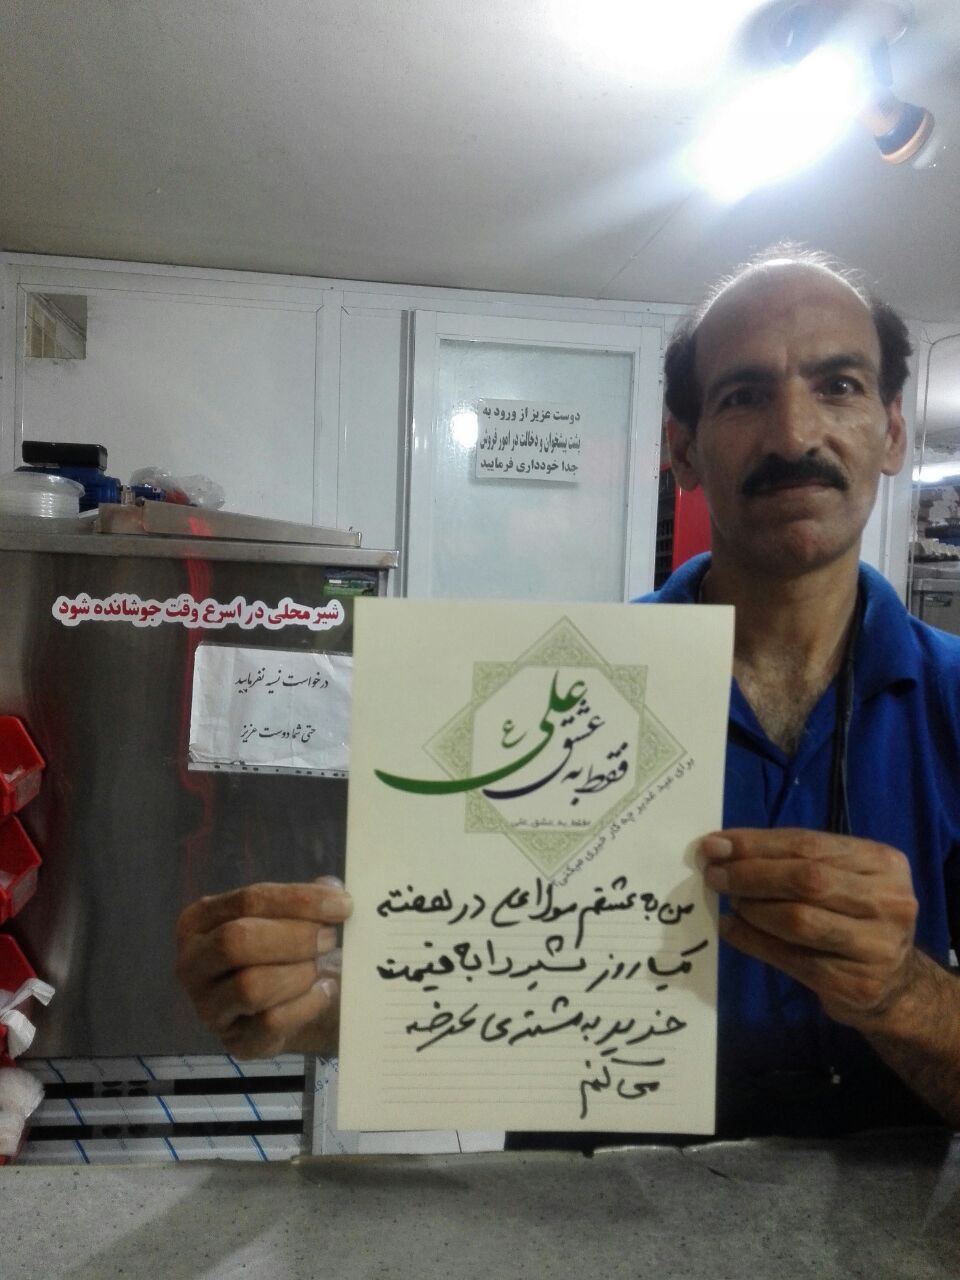 دوست عزیز از ورود به
پشت پیشخوان و دخالت در امور فروش
جدا خودداری فرمایید
شیر محلی در اسرع وقت جوشانده شود
درخواست نسیه نفرمایید
حتی شما دوست عزیز
فقط به عشق علی ع
فقط به عشق علی
برای عید غدیر چه کار خیری میکنی؟
من به عشقم مولا علی در هفته
یک روز شیر را به قیمت
خرید به مشتری عرضه
می کنم